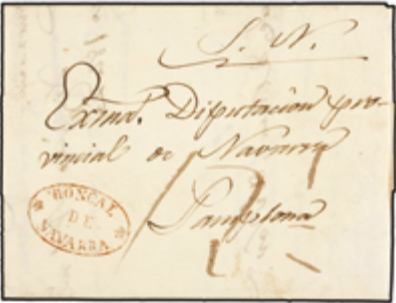 S. N.
Exma. Diputacion pro-
vincial de Navarra
Pamplona
RONCAL
DE
NAVARRA